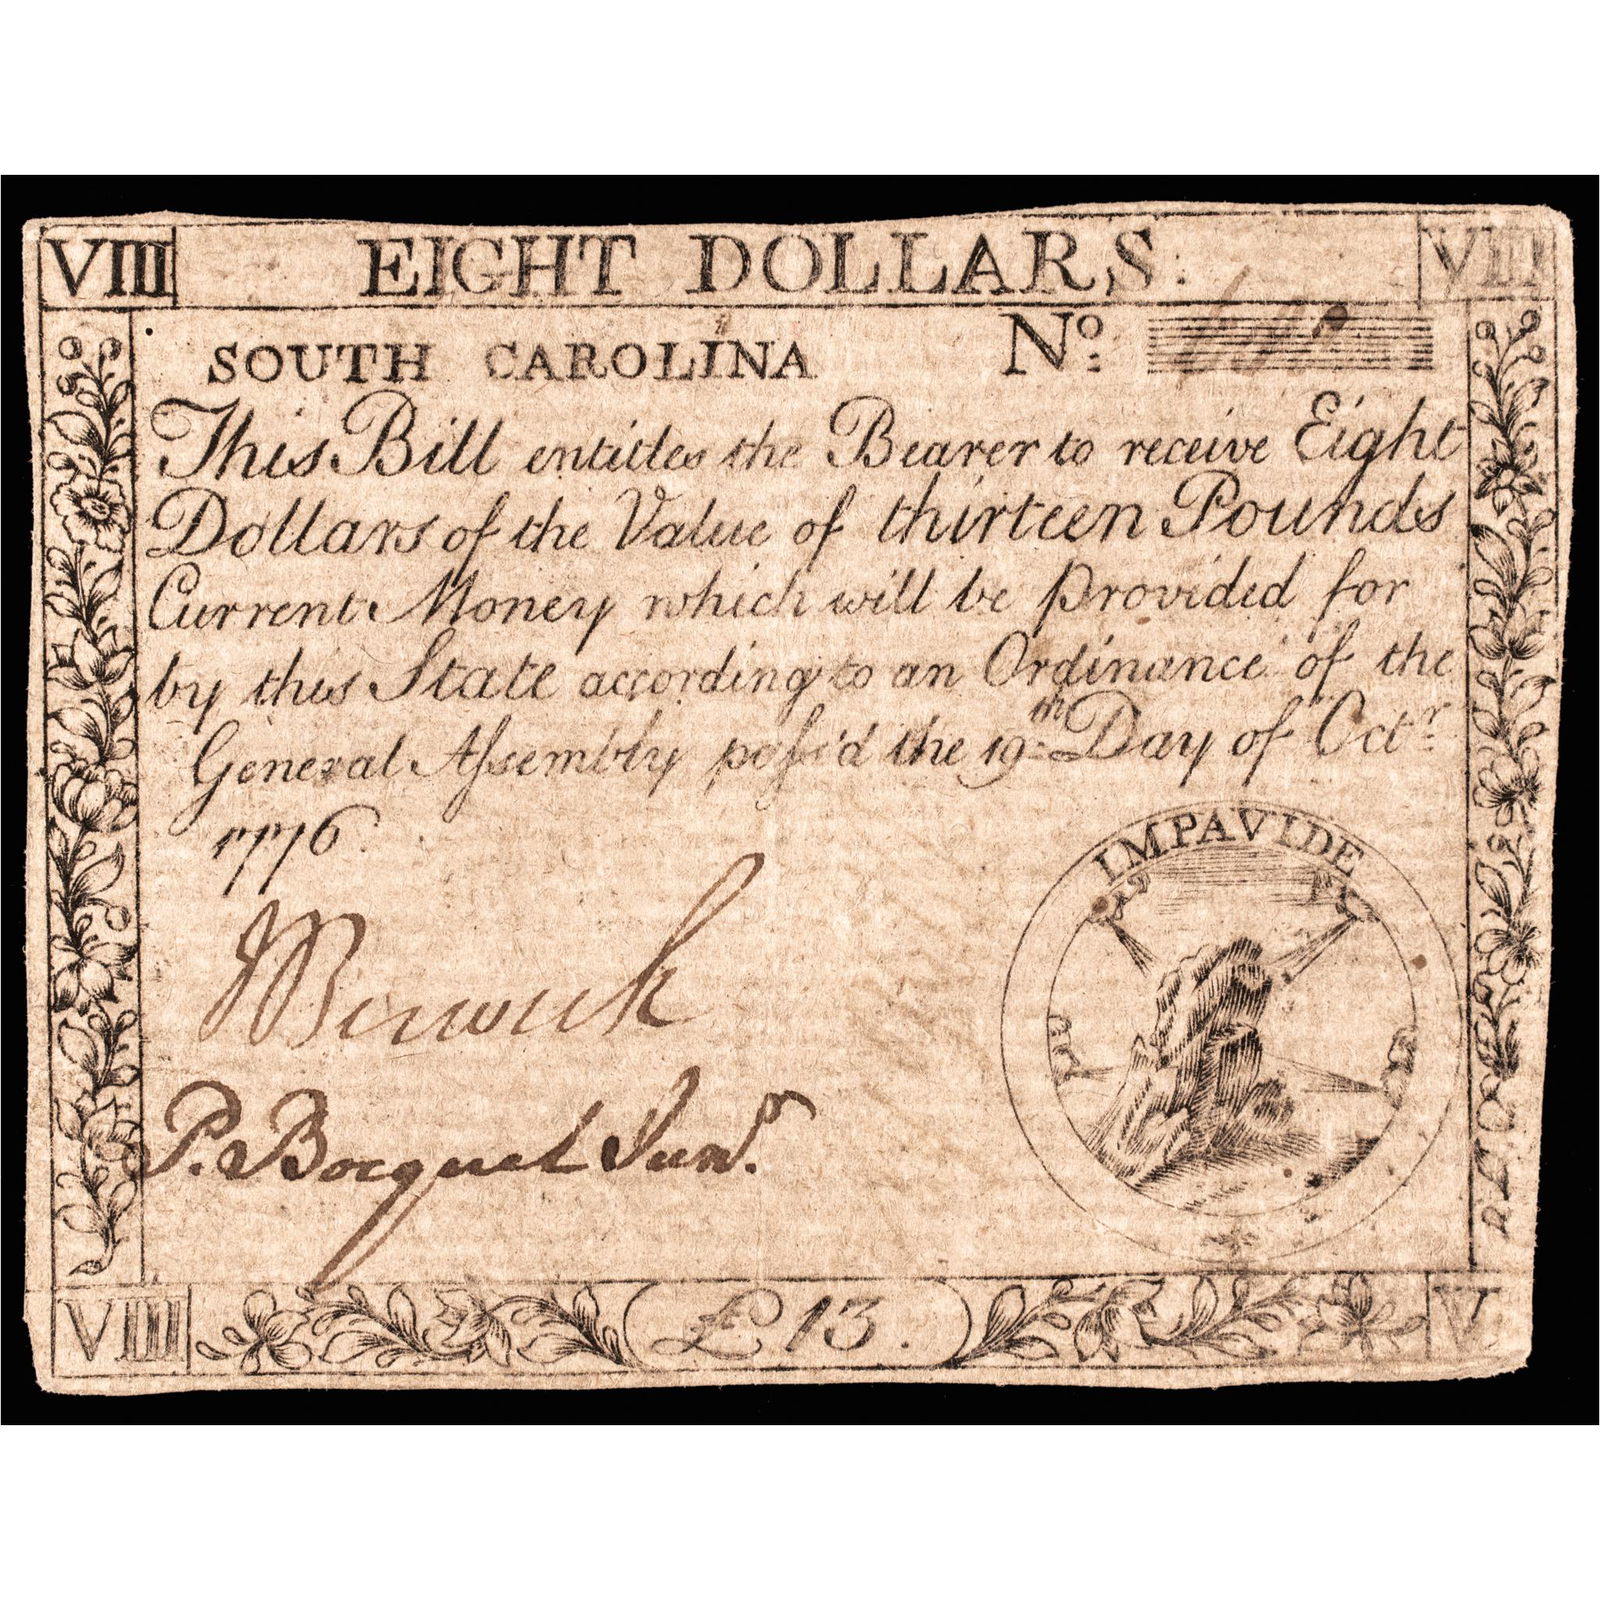 VIII EIGHT DOLLARS. VIII
SOUTH CAROLINA Nº:
This Bill entitles the Bearer to receive Eight
Dollars of the Value of thirteen Pounds
Current Money which will be provided for
by this State according to an Ordinance of the
General Aſsembly paſs'd the 19th Day of Octr
1776.
IMPAVIDE
P. Bocquet Junr.
VIII £13. V